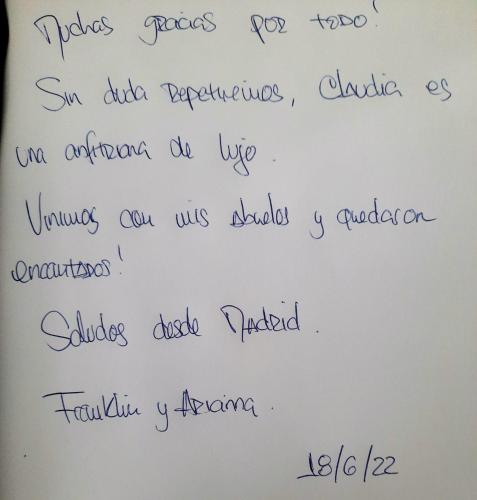 Muchas gracias por todo!
Sin duda repetiremos, Claudia es
una anfitriona de lujo.
Vinimos con mis abuelos y quedaron
encantados!
Saludos desde Madrid.
Franklin y Arianna.
18/6/22